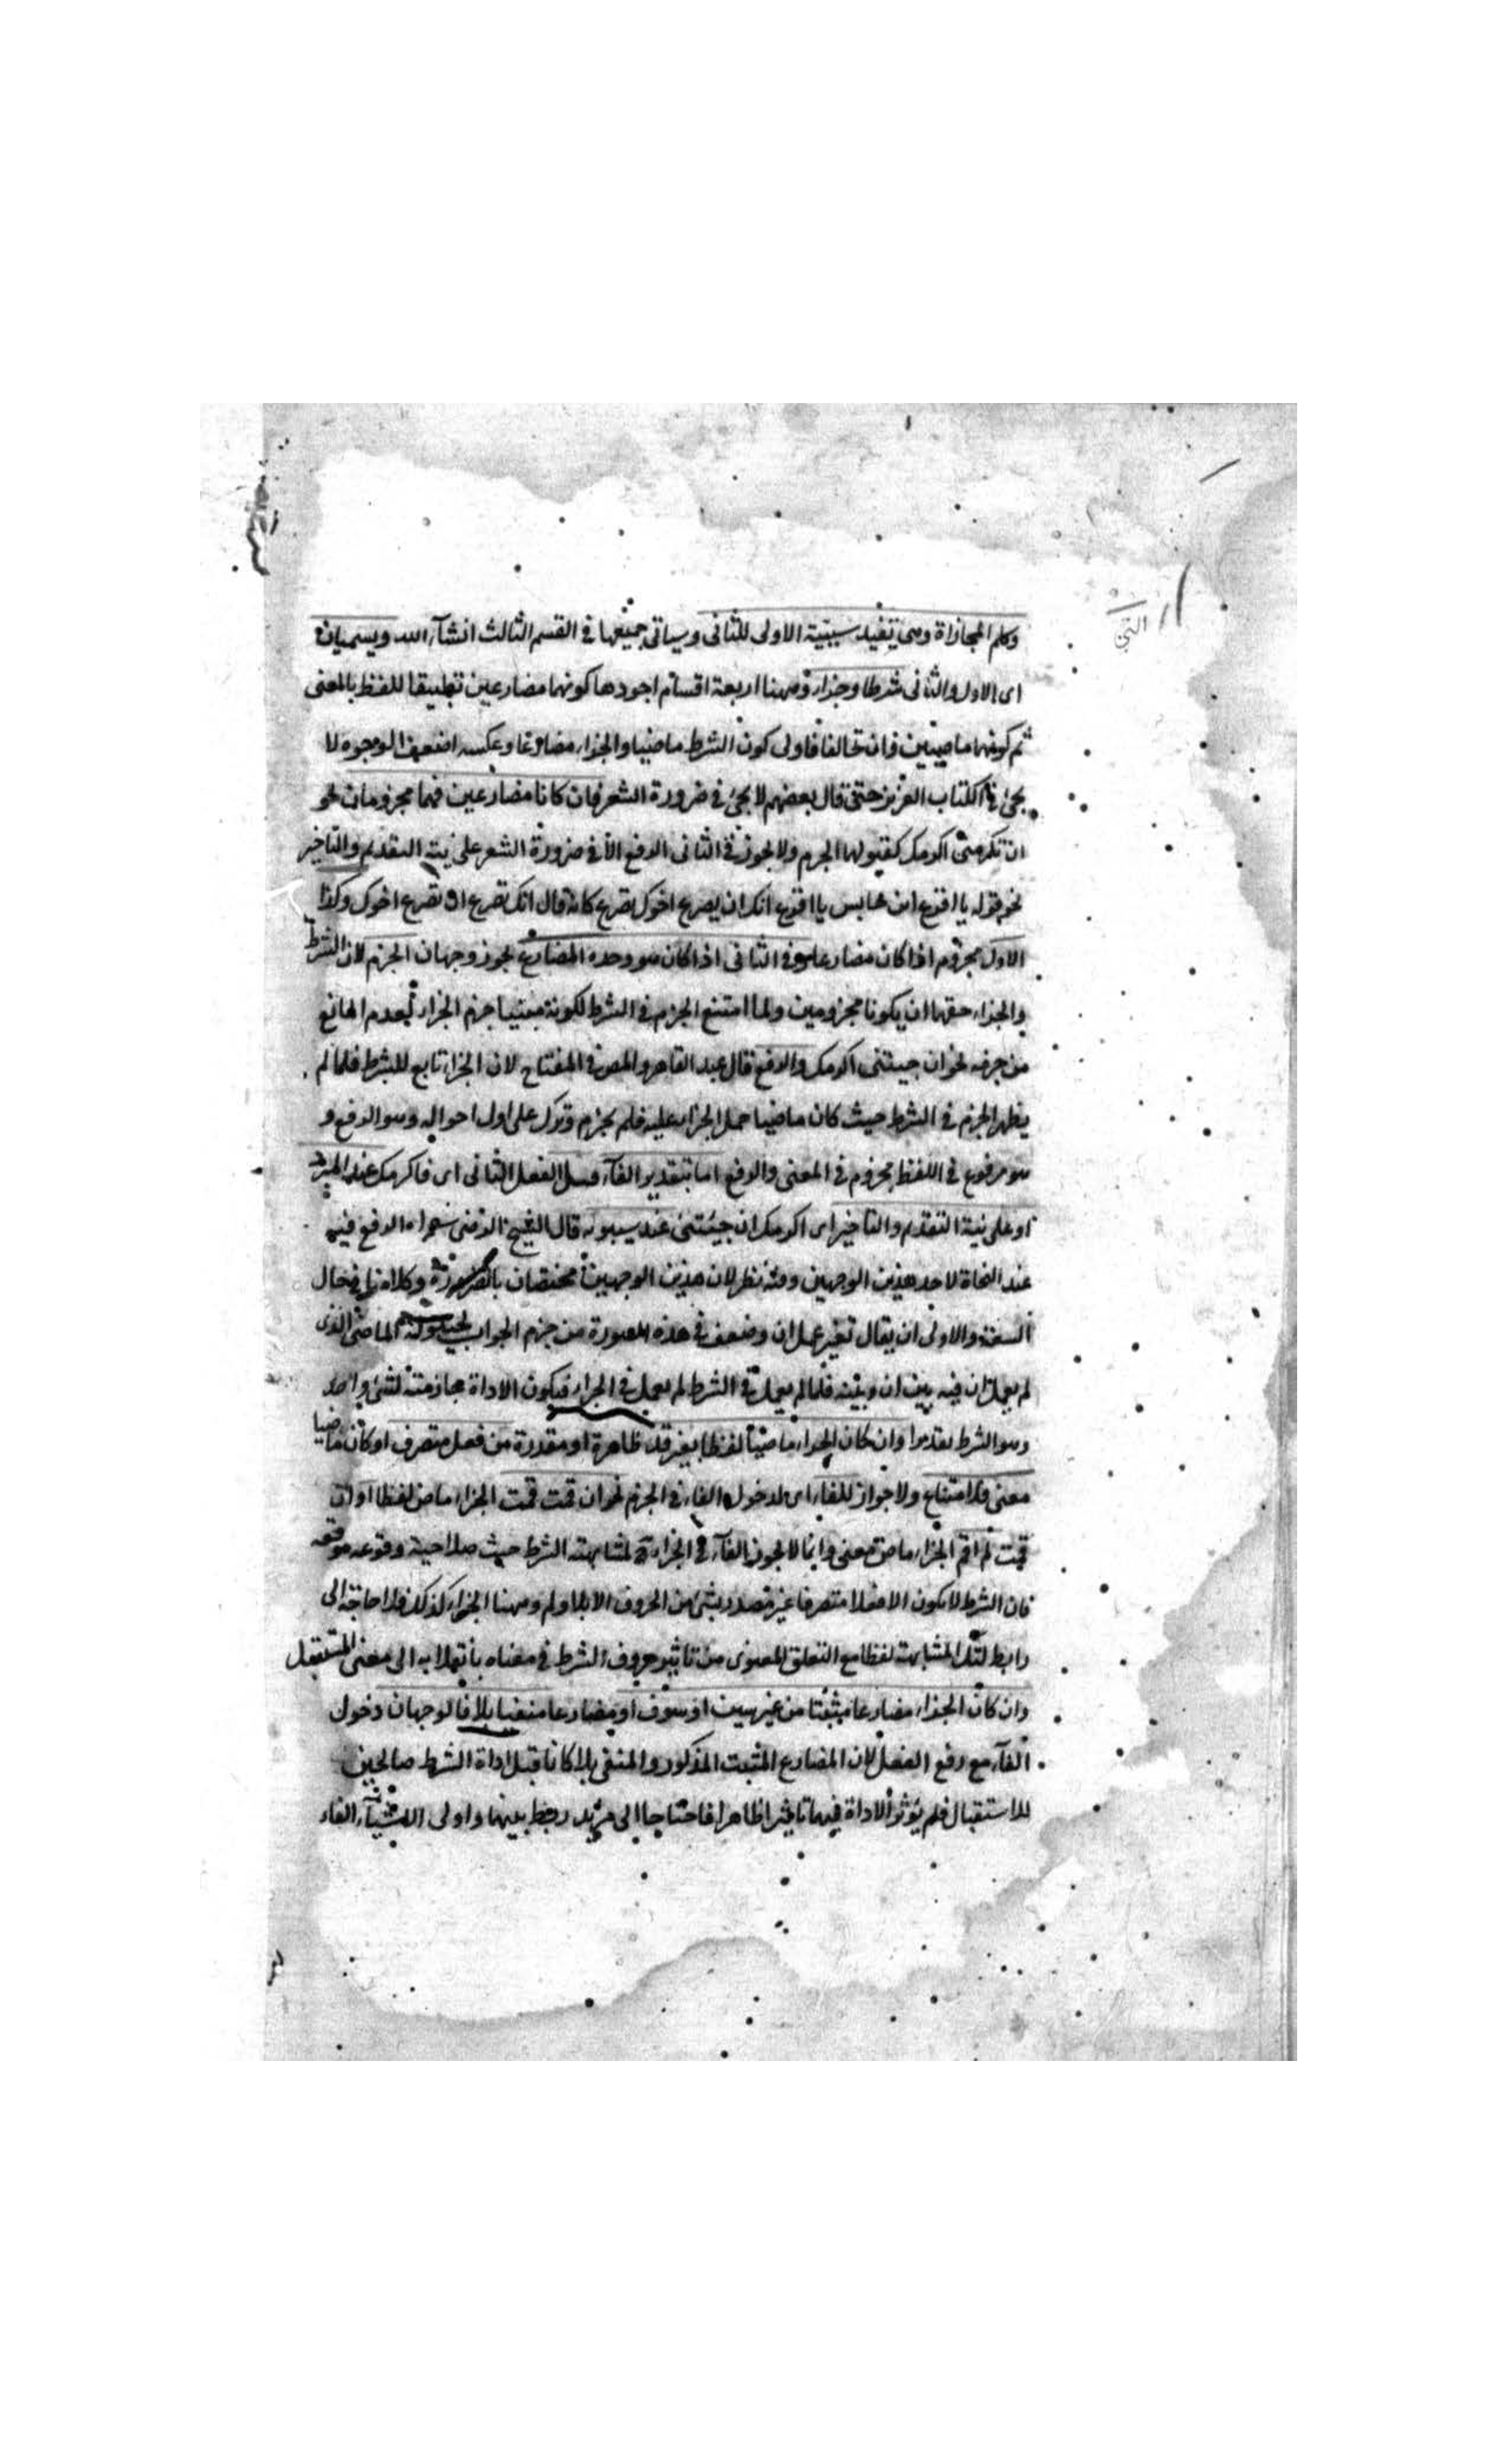 وكلم المجازاة وهى تفيد سببية الاولى للثانى وسياتى جميعها فى القسم الثالث انشآء الله ويسميان
اى الاول والثانى شرطا وجزاء وههنا اربعة اقسام اجودها كونهما مضارعين تطبيقا للفظ بالمعنى
ثم كونهما ماضيين وان تخالفا فاولى كون الشرط ماضيا والجزاء مضارعا وعكسه اضعف الوجوه لا
يجئ فى الكتاب العزيز حتى قال بعضهم لا يجئ فى ضرورة الشعر فان كانا مضارعين فهما مجزومان نحو
ان تكرمنى اكرمك كقبولهما الجرم ولا يجوز فى الثانى الرفع الا فى ضرورة الشعر على نية التقديم والتاخير
نحو قوله يا اقرع ابن حابس يا اقرع انك ان يصرع اخوك تصرع كانه قال انك تصرع ان تصرع اخوك وكذا
الاول مجزوم اذا كان مضارعا وفى الثانى اذا كان هو وحده المضارع يجوز وجهان الجزم لان الشرط
والجزاء حقهما ان يكونا مجزومين ولما امتنع الجزم فى الشرط لكونه مبنيا جزم الجزاء لعدم المانع
من جزمه نحو ان جيتنى اكرمك والرفع قال عبد القاهر والمص فى المفتاح لان الجزاء تابع للشرط فلما لم
يظهر الجزم فى الشرط حيث كان ماضيا حمل الجزاء عليه فلم يجزم وترك على اول احواله وهو الرفع و
هو مرفوع فى اللفظ مجزوم فى المعنى والرفع اما بتقدير الفآء قبل الفعل الثانى اى فاكرمك عند المبرد
او على نية التقديم والتاخير اى اكرمك ان جيئتنى عند سيبويه قال الشيخ الرضى الرفع فيه
عند النحاة لاحد هذين الوجهين وفيه نظر لان هذين الوجهين مختصان بالضرورة وكلامنا فى حال
السعة والاولى ان يقال تغير عمل ان وضعف فى هذه الصورة من جزم الجواب لحيلولة الماضى الذى
لم يعمل ان فيه بين ان وبينه فلما لم يعمل فى الشرط لم يعمل فى الجزاء فيكون الاداة جازمته لشئ واحد
وهو الشرط تقديرا وان كان الجزاء ماضيا لفظا بغير قد ظاهرة او مقدرة من فعل متصرف او كان ماضيا
معنى فلا امتناع ولا جواز للفاء اى لدخول الفاء فى الجزم نحو ان قمت قمت الجزاء ماض لفظا او ان
قمت لم اقم الجزاء ماض معنى وانما لا يجوز الفآء فى الجزاء لمشابهته الشرط حيث صلاحية وقوعه موقعه
فان الشرط لا يكون الا فعلا متصرفا غير مصدر بشئ من الحروف الا بلا ولم وههنا الجزاء كذلك فلا حاجة الى
رابط لتلك المشابهة لفظا مع التعلق المعنوى من تاثير حروف الشرط فى معناه بانقلابه الى معنى المستقبل
وان كان الجزاء مضارعا مثبتا من غير سين او سوف او مضارعا منفيا بلا فالوجهان دخول
الفآء مع رفع الفعل لان المضارع المثبت المذكور والمنفى بلا كانا قبل اداة الشرط صالحين
للاستقبال فلم يؤثر الاداة فيهما تاثيرا ظاهرا فاحتاجا الى مزيد ربط بينهما واولى الاشيآء الفاء